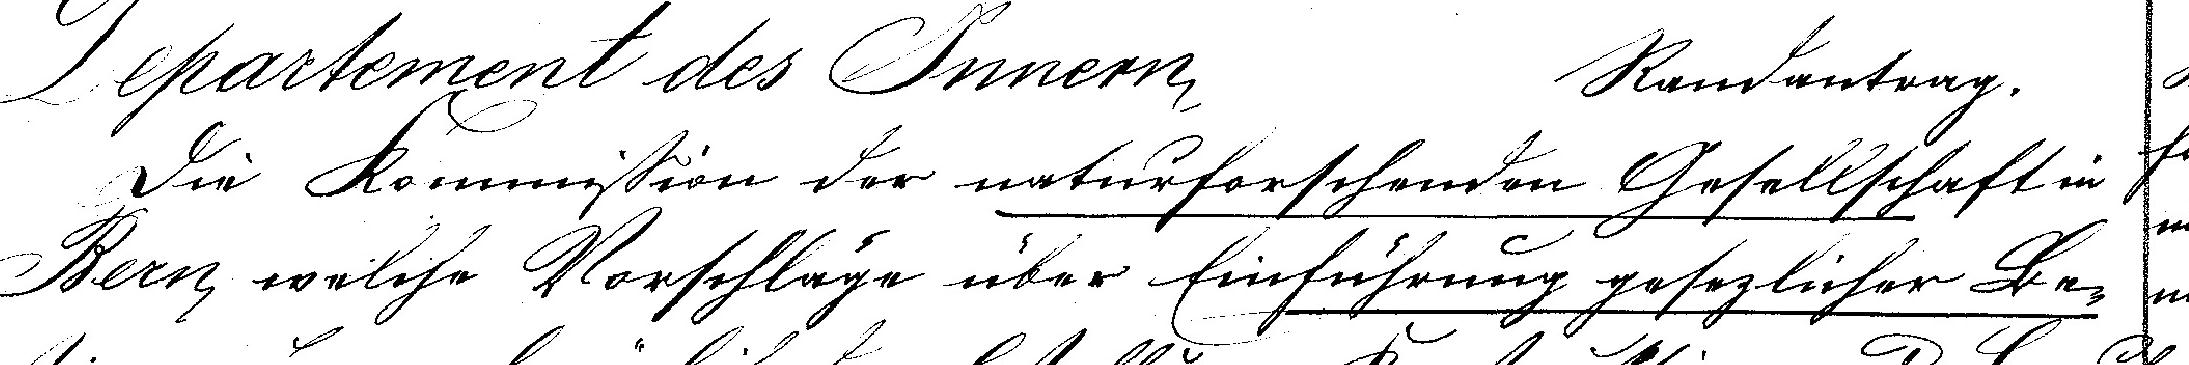 Departement des Innern, Randantrag.
Die Kommission der naturforschenden Gesellschaft in
Bern, welche Vorschläge über Einführung gesezlicher Be-